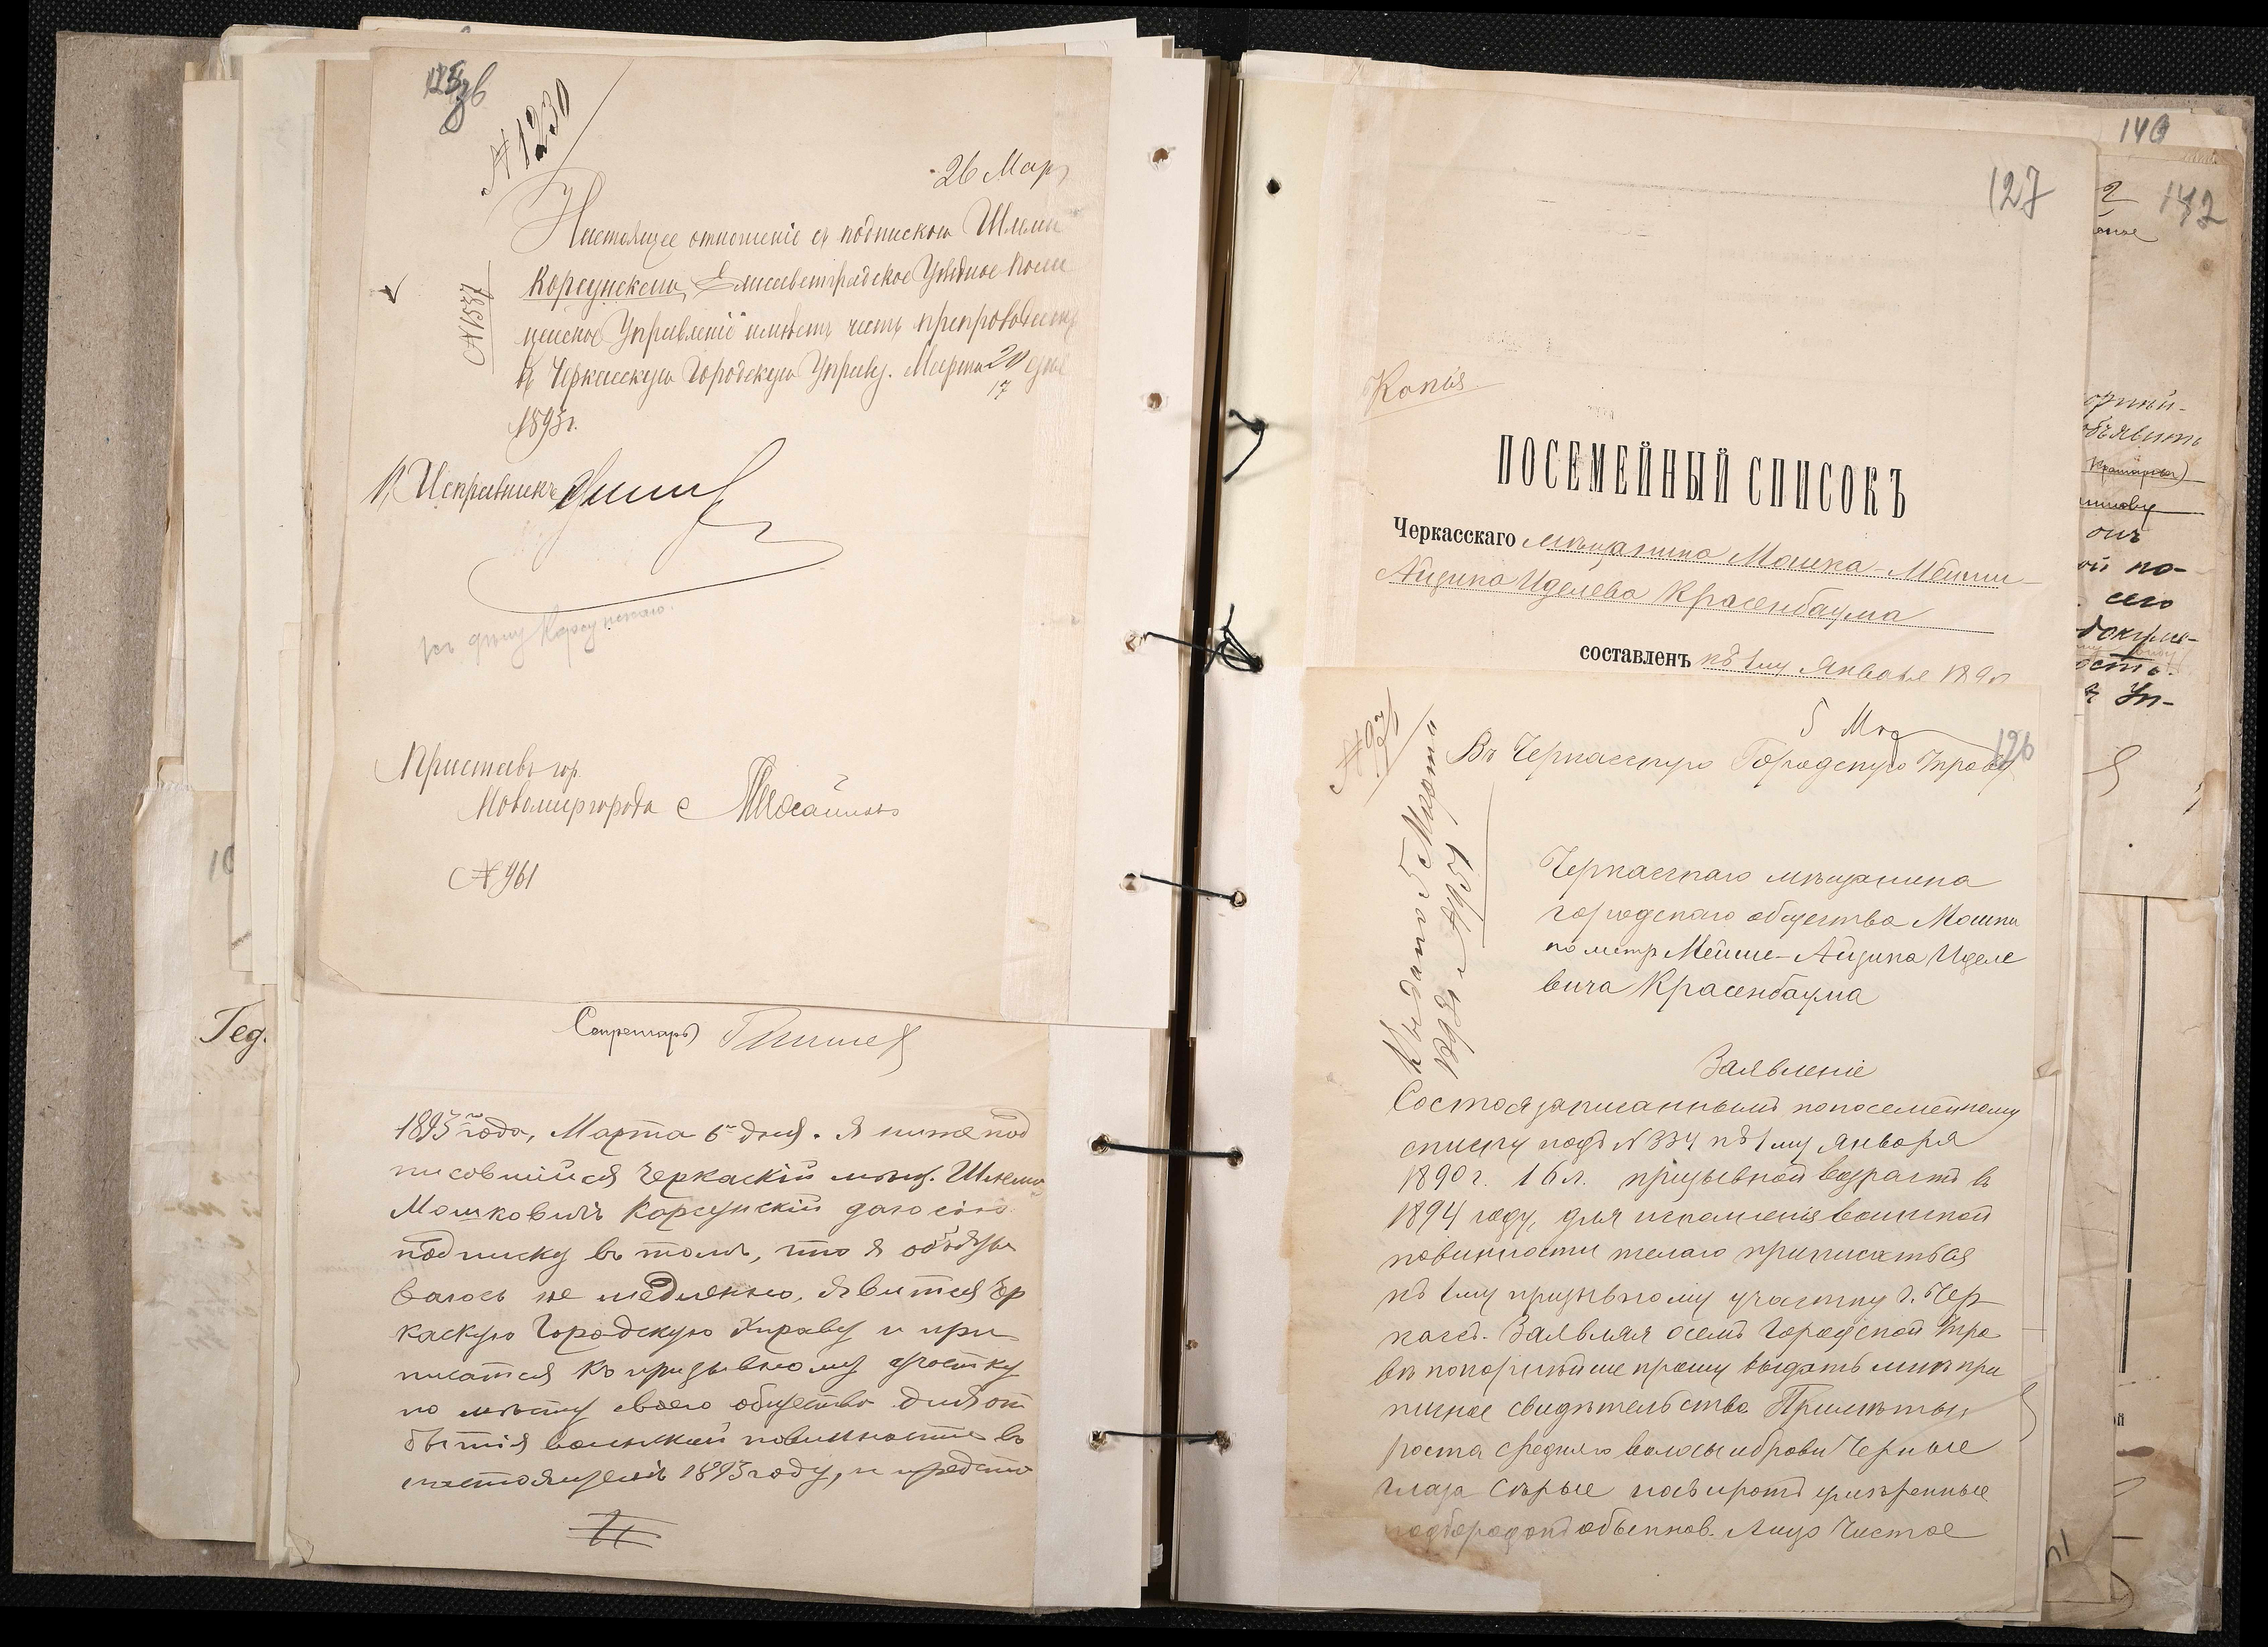 № 1230
26 Мар
Настоящее отношеніе съ подпискою Шлемы
Корсунскаго, Елисаветградское Уѣздное Поли
цейское Управленіе имѣетъ честь препроводить
въ Черкасскую Городскую Управу. Марта 20 дня
17
1893 г.
№ 1537
Исправникъ
къ дѣлу Корсунскаго.
Приставъ гор.
Новомиргорода
№ 961
Секретарь
1893 года, Марта 6 дня. Я ниже под
писовшійся Черкаскій мѣщ. Шлема
Мошковичъ Корсунскій даю сію
подписку въ томъ, что я объязы
ваюсь не медленно, явится Чер
каскую Городскую Управу и при
писатся къ призывному участку
по мѣсту своего общество для от
бытія воинской повинности въ
настоящемъ 1893 году, и предста
127
Копія
ПОСЕМЕЙНЫЙ СПИСОКЪ
Черкасскаго мѣщанина Мошка-Мейши-
Айзика Иделева Красенбаума
составленъ къ 1му Января 1890
5 Мар
126
Въ Черкасскую Городскую Управу
Выдано 5 Марта
1893 г. № 951
Черкасскаго мѣщанина
городскаго общества Мошки
по метр Мейше-Айзика Иделе
вича Красенбаума
Заявленіе
Состоя записаннымъ по посемейному
списку подъ № 334 къ 1му Января
1890 г. 16 л. призывной возрастъ въ
1894 году, для исполненія воинской
повинности желаю приписаться
къ 1му призывному участку г. Чер
касъ. Заявляя о семъ Городской Упра
вѣ покорнѣйше прошу выдать мнѣ при
писное свидѣтельство Примѣты:
роста средняго волосы и брови Черные
глаза Сѣрые носъ и ротъ умѣренные
подбородокъ обыкнов. лицо Чистое
140
142
орный-
объявить
онъ
ой по-
сего
докумен-
ость.
Уп-
Гед.